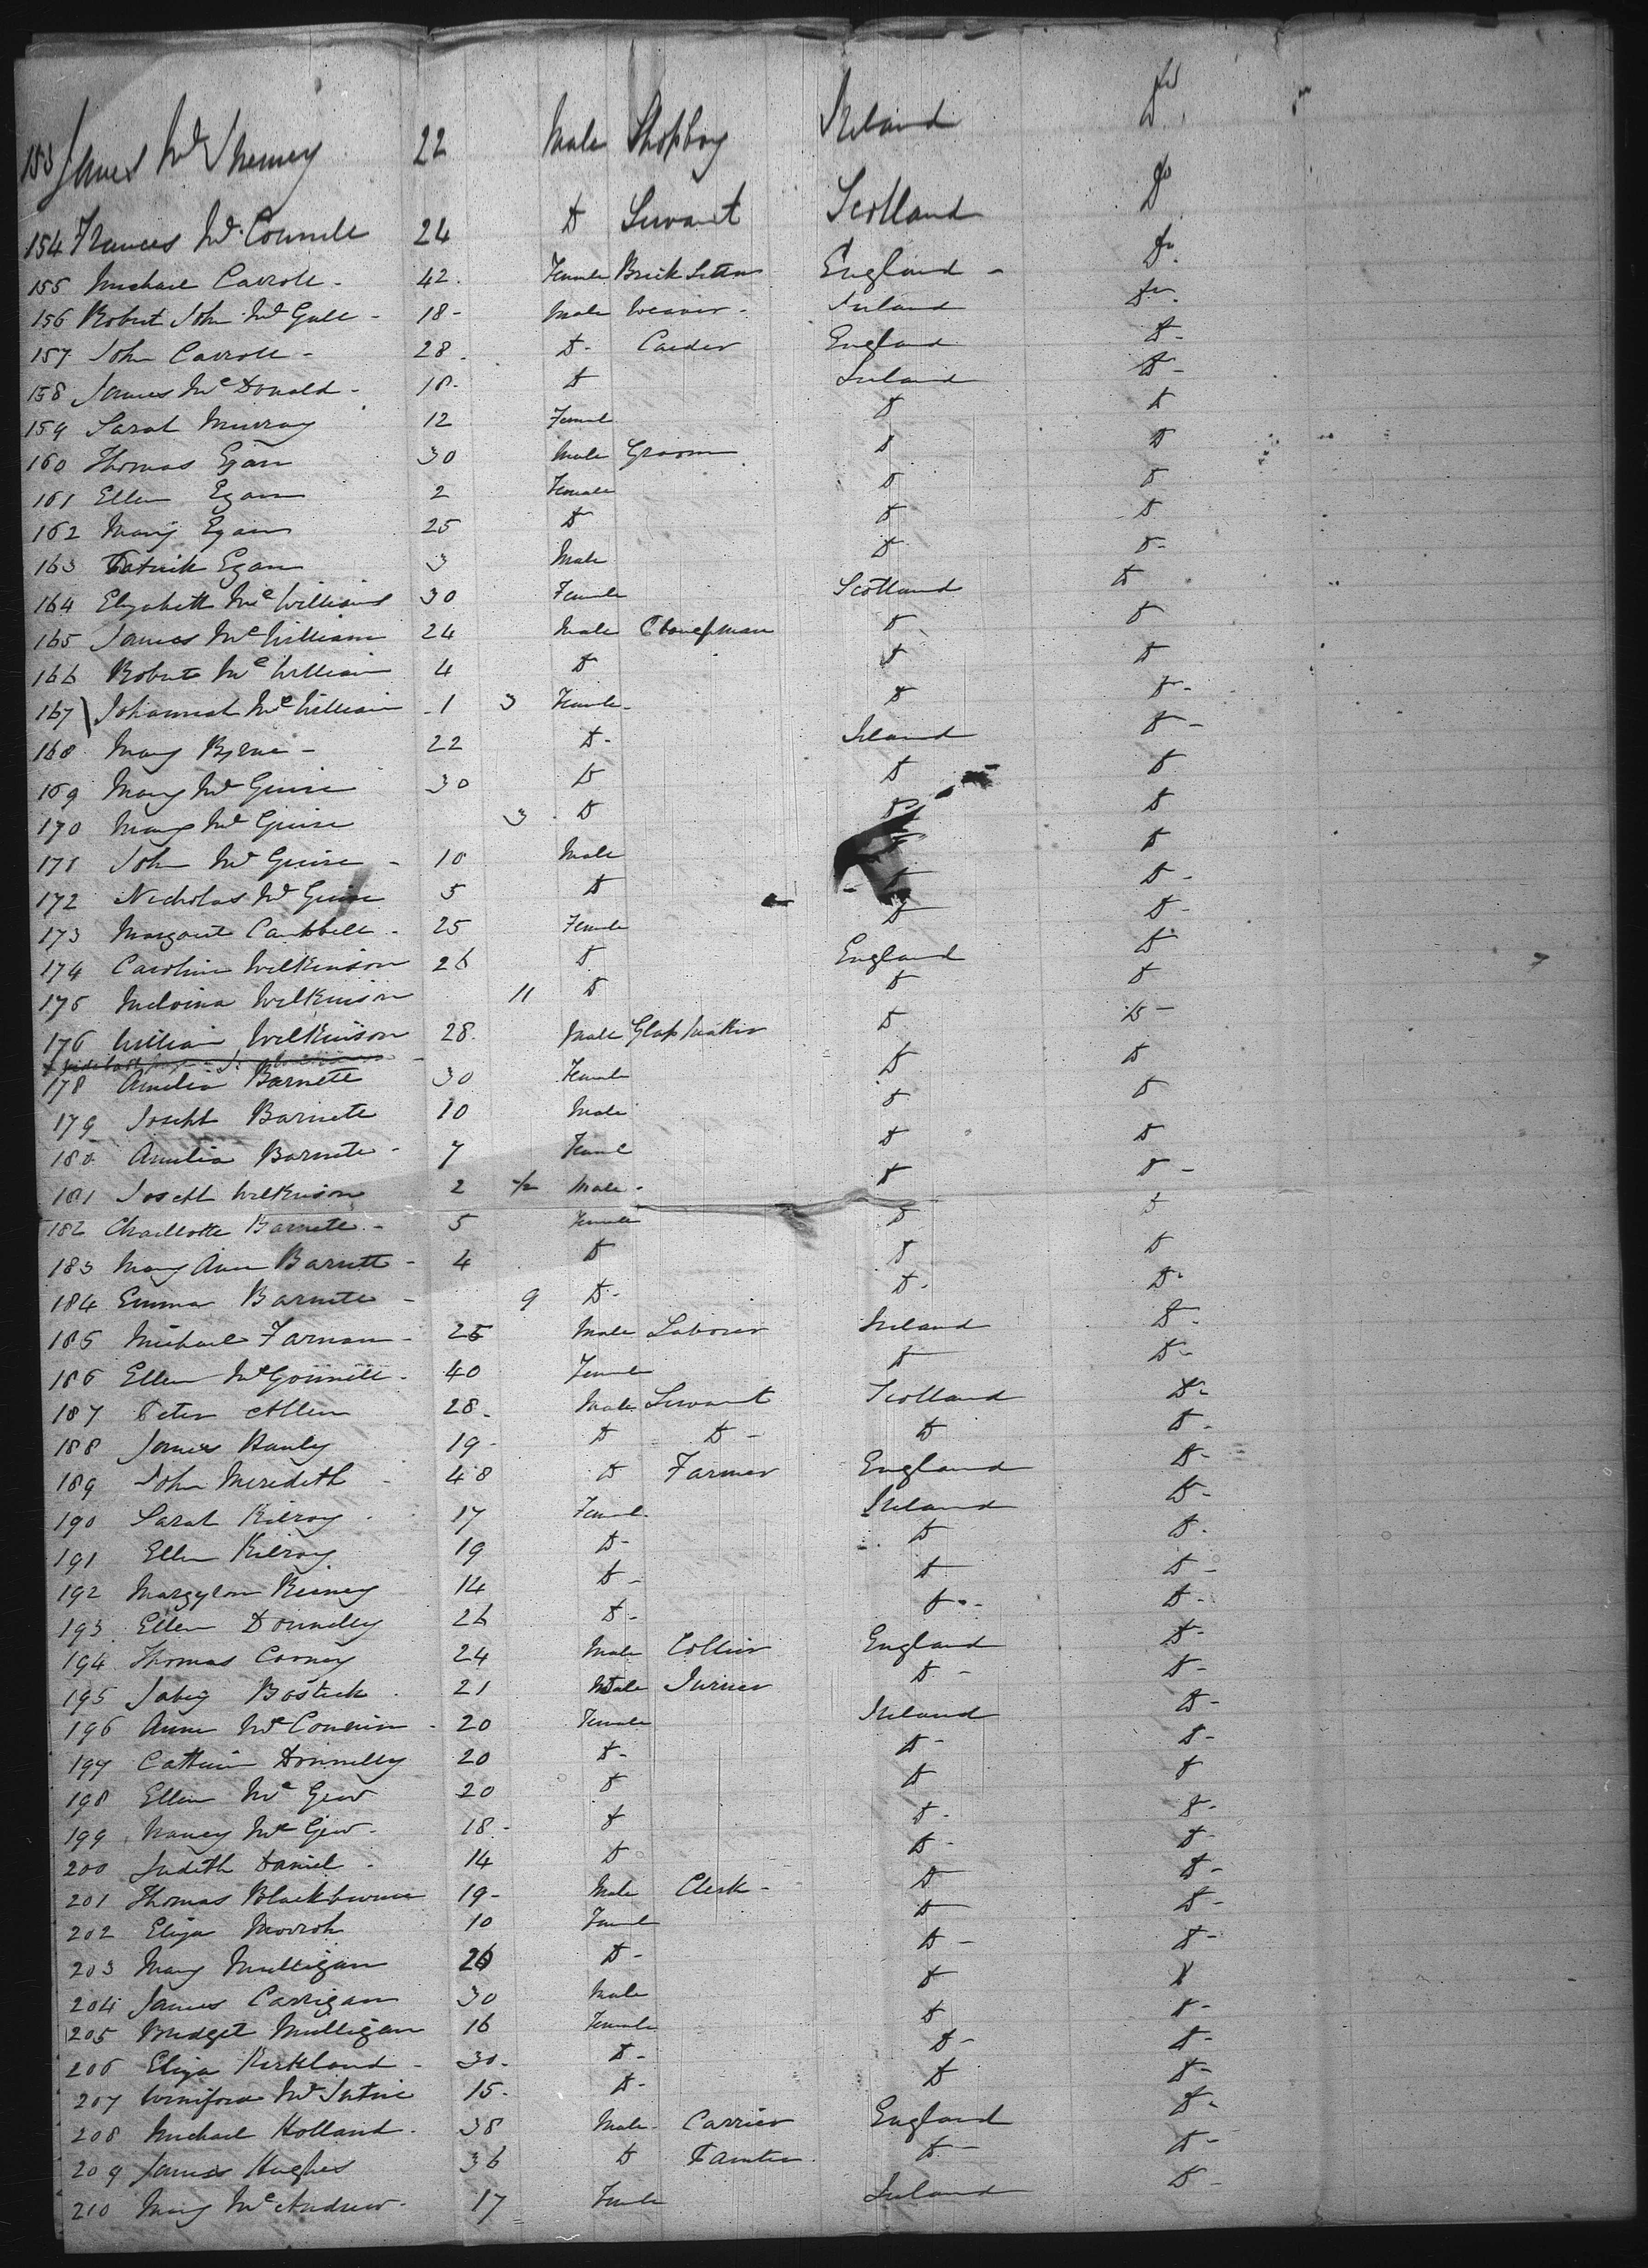 153 James Mc 22 Male Shopboy Ireland Do
154 Frances Mc Connell 24 Do Servant Scotland Do
155 Michael Carroll - 42. Female Brick Setter England - Do.
156 Robert John Mc Gull - 18- Male Weaver - Ireland Do.
157 John Carroll - 28. Do- Carder England Do-
158 James Mc Donald - 18- Do Ireland Do-
159 Sarah Murray 12 Female Do Do
160 Thomas Egan 30 Male Groom Do Do
161 Ellen Egan 2 Female Do Do
162 Mary Egan 25 Do Do Do
163 Patrick Egan 3 Male Do Do-
164 Elizabeth McWilliams 30 Female Scotland Do
165 James McWilliam 24 Male Do Do
166 Robert McWilliam 4 Do Do Do
167 Johannah McWilliam 1 3 Female- Do Do-
168 Mary Byrne - 22 Do- Ireland Do-
169 Mary McGuire 30 Do Do Do
170 Mary McGuire 3 Do Do Do
171 John McGuire - 10 Male Do Do
172 Nicholas McGuire 5 Do Do Do-
173 Margaret Campbell - 25 Female Do Do-
174 Caroline Wilkinson 26 Do England Do
175 Melvina Wilkinson 11 Do Do Do
176 William Wilkinson 28. Male Glass Maker Do Do-
178 Amelia Barnett 30 Female Do Do
179 Joseph Barnett 10 Male Do Do
180 Amelia Barnett - 7 Femal Do Do
181 Joseph Wilkinson 2 1/2 Male - Do Do-
182 Charllotte Barnett - 5 Female Do Do
183 Mary Ann Barnett - 4 Do Do Do
184 Emma Barnett - 9 Do- Do- Do-
185 Michael Farnan - 25 Male Laborer Ireland Do-
186 Ellen McGonnell - 40 Female Do Do-
187 Peter Allen 28. Male Servant Scotland Do-
188 James Hanly 19- Do Do- Do Do-
189 John Meredith - 48 Do Farmer England Do-
190 Sarah Kilroy - 17 Femal Ireland Do-
191 Ellen Kilroy 19 Do- Do Do-
192 Kinney 14 Do- Do Do-
193 Ellen Donnelly 26 Do- Do- Do-
194 Thomas Cooney 24 Male Collier England Do-
195 Jabez Bostick - 21 Male Turner Do- Do-
196 Anne Mc - 20 Female Ireland Do-
197 Donnelly 20 Do- Do- Do-
198 Ellen McGew 20 Do Do Do
199 Nancy McGew - 18- Do Do- Do-
200 Judith Daniel - 14 Do Do- Do-
201 Thomas Blackburne 19- Male Clerk - Do Do-
202 Eliza 10 Femal Do Do-
203 Mary Mulligan 26 Do- Do- Do-
204 James Carrigan 30 Male Do Do
205 Bridget Mulligan 16 Female Do Do-
206 Eliza Kirkland - 30- Do- Do- Do-
207 Winifred McIntire 15- Do- Do Do-
208 Michael Holland - 38 Male - Carrier England Do-
209 James Hughes 36 Do Painter Do- Do-
210 Mary McAndrew - 17 Female Ireland Do-